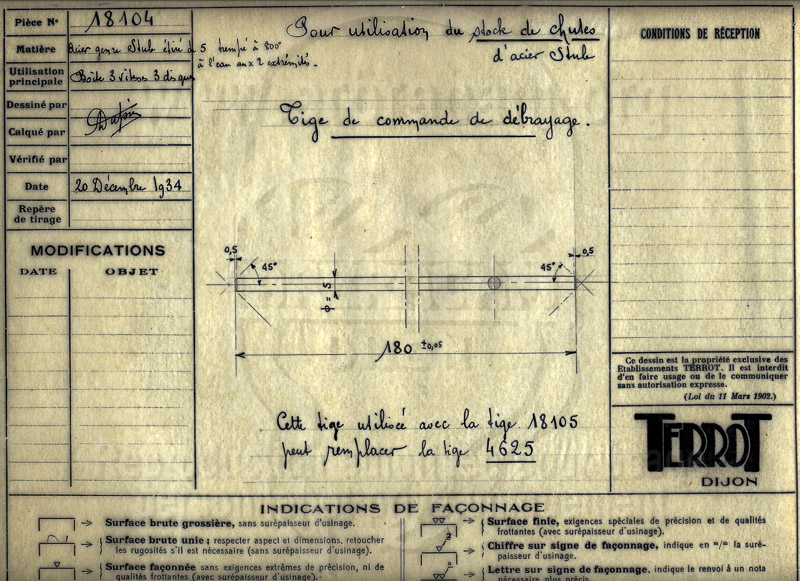 Pièce N° 18104
Matière Acier genre Stub étiré de 5 trempé à 800°
à l'eau aux 2 extrémités.
Utilisation principale Boîte 3 vitesses 3 disques
Dessiné par
Calqué par
Vérifié par
Date 20 Décembre 1934
Repère
de tirage
MODIFICATIONS
DATE OBJET
Pour utilisation du stock de chutes
d'acier Stub
Tige de commande de débrayage.
0,5
45°
φ = 5
45°
0,5
180 ±0,05
Cette tige utilisée avec la tige 18105
peut remplacer la tige 4625
CONDITIONS DE RÉCEPTION
Ce dessin est la propriété exclusive des
Etablissements TERROT. Il est interdit
d'en faire usage ou de le communiquer
sans autorisation expresse.
(Loi du 11 Mars 1902.)
TERROT
DIJON
INDICATIONS DE FAÇONNAGE
Surface brute grossière, sans surépaisseur d'usinage.
Surface brute unie; respecter aspect et dimensions, retoucher
les rugosités s'il est nécessaire (sans surépaisseur d'usinage).
Surface façonnée sans exigences extrêmes de précision, ni de
qualités frottantes (avec surépaisseur d'usinage).
Surface finie, exigences spéciales de précision et de qualités
frottantes (avec surépaisseur d'usinage).
Chiffre sur signe de façonnage, indique en =/= la suré-
paisseur d'usinage.
Lettre sur signe de façonnage, indique le renvoi à un nota
nécessaire plus précis.